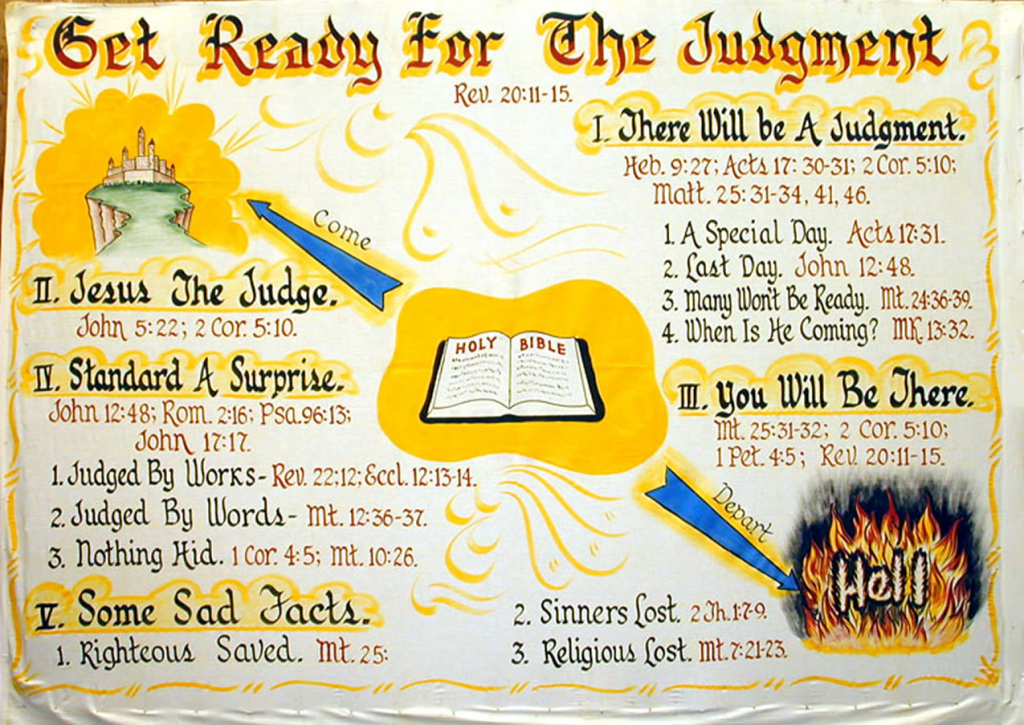 Get Ready For The Judgment
Rev. 20:11-15.
I. There Will be A Judgment.
Heb. 9:27; Acts 17: 30-31; 2 Cor. 5:10;
Matt. 25: 31-34, 41, 46.
1. A Special Day. Acts 17:31.
2. Last Day. John 12:48.
3. Many Won't Be Ready. Mt. 24:36-39.
4. When Is He Coming? MK. 13:32.
Come
II. Jesus The Judge.
John 5:22; 2 Cor. 5:10.
HOLY BIBLE
III. You Will Be There.
Mt. 25:31-32; 2 Cor. 5:10;
1 Pet. 4:5; Rev. 20:11-15.
Depart
Hell
IV. Standard A Surprise.
John 12:48; Rom. 2:16; Psa. 96:13;
John 17:17.
1. Judged By Works - Rev. 22:12; Eccl. 12:13-14.
2. Judged By Words - Mt. 12:36-37.
3. Nothing Hid. 1 Cor. 4:5; Mt. 10:26.
V. Some Sad Facts.
1. Righteous Saved. Mt. 25:
2. Sinners Lost. 2 Th. 1:7-9.
3. Religious Lost. Mt. 7:21-23.